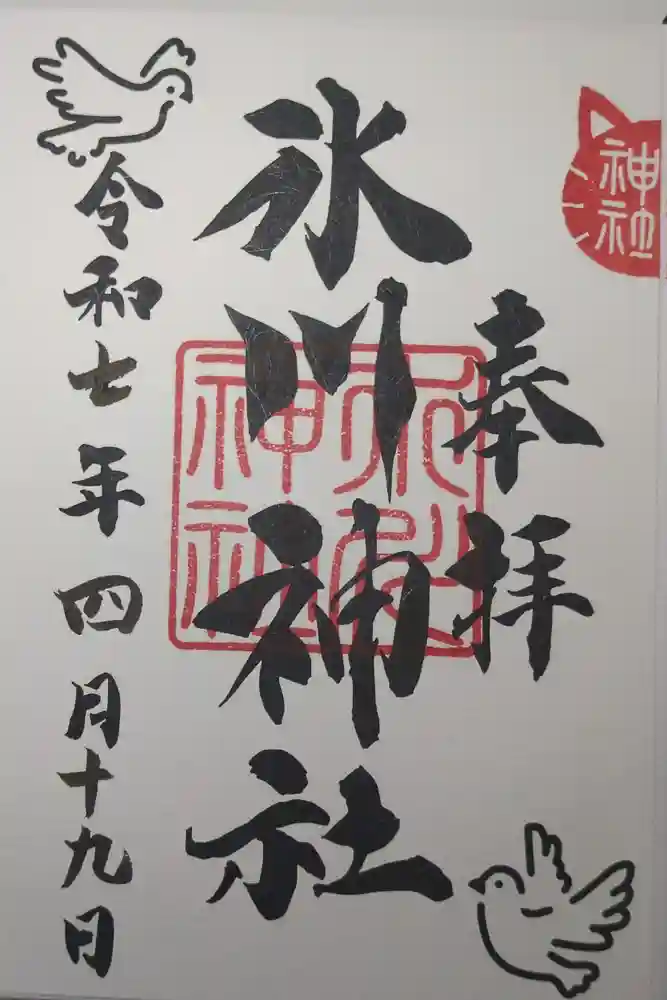 神社
奉拝
氷川神社
令和七年四月十九日